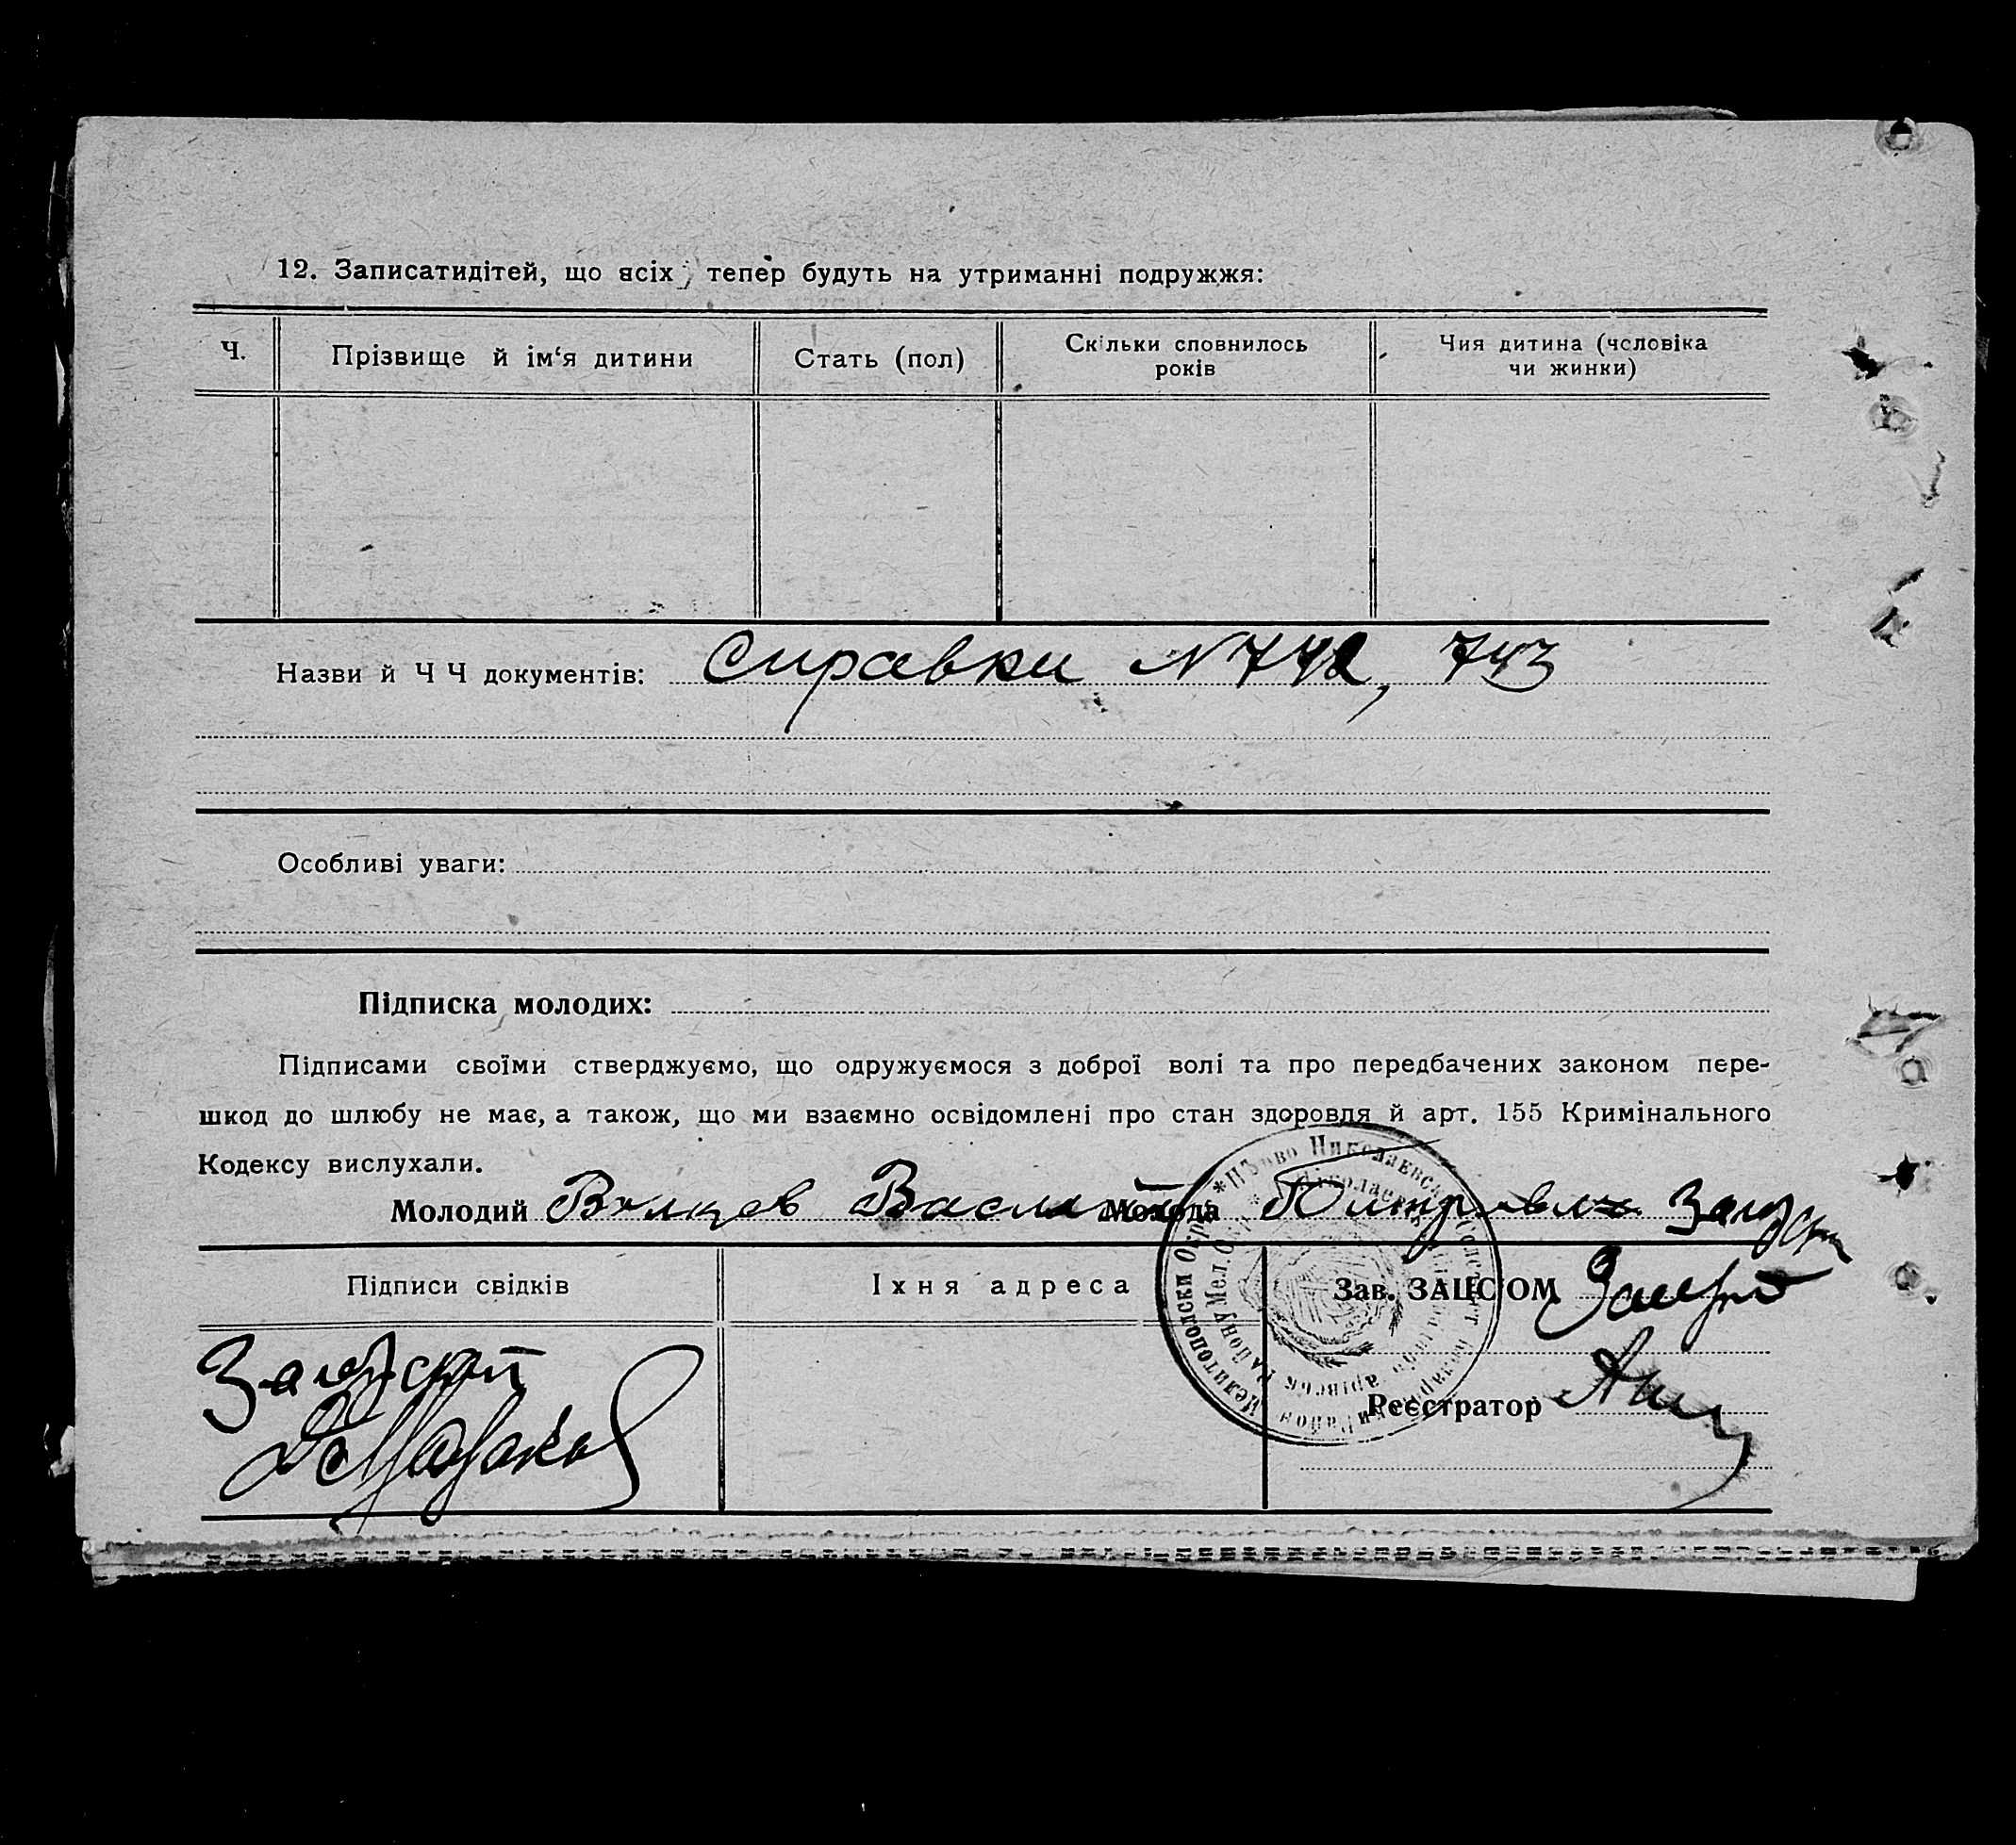 12. Записатидітей, що всіх тепер будуть на утриманні подружжя:
Ч.
Прізвище й ім‘я дитини
Стать (пол)
Скільки сповнилось
років
Чия дитина (чоловіка
чи жинки)
Назви й Ч Ч документів: Справки N 742, 743
Особливі уваги:
Підписка молодих:
Підписами своїми стверджуємо, що одружуємося з доброї волі та про передбачених законом пере-
шкод до шлюбу не має, а також, що ми взаємно освідомлені про стан здоровля й арт. 155 Кримінального
Кодексу вислухали.
Молодий Волков Василий Молода
Підписи свідків
Їхня адреса
Зав. ЗАЦС'ОМ
Реєстратор